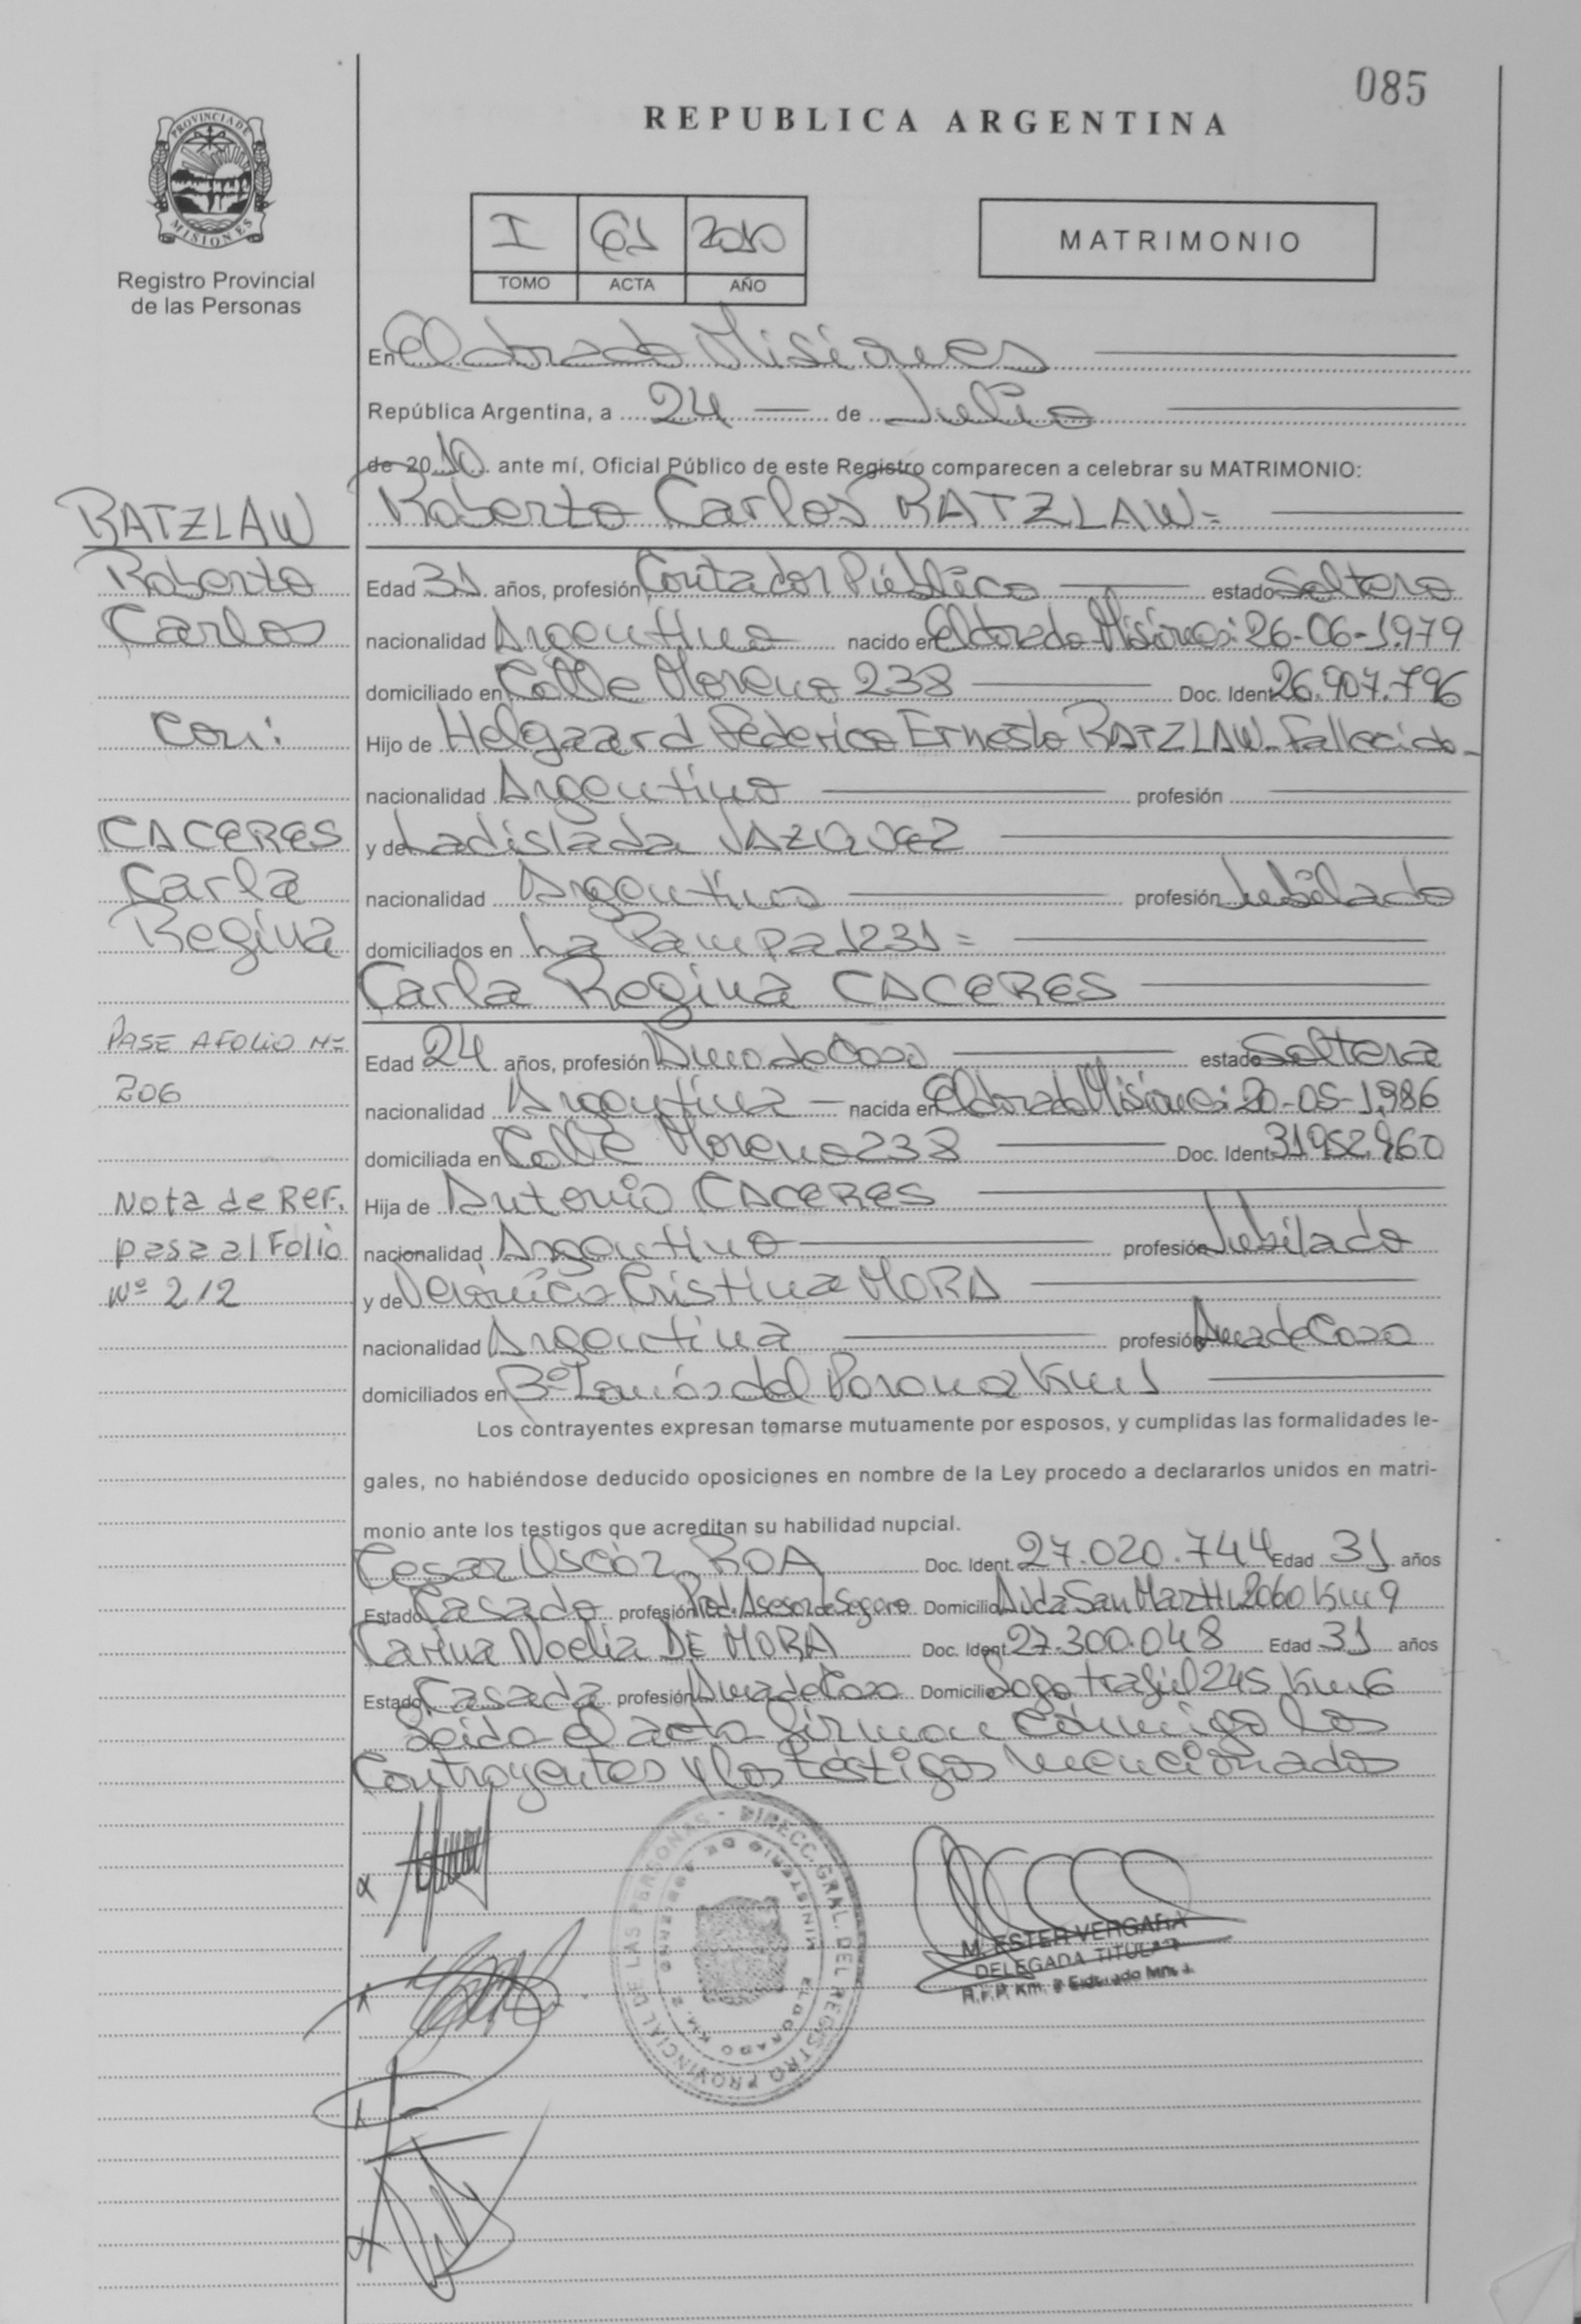 085
REPUBLICA ARGENTINA
PROVINCIA DE
MISIONES
Registro Provincial
de las Personas
I 61 2010
TOMO ACTA AÑO
MATRIMONIO
En Eldorado Misiones
República Argentina, a 24 de Julio
de 2010 ante mí, Oficial Público de este Registro comparecen a celebrar su MATRIMONIO:
Roberto Carlos RATZLAW=
RATZLAW
Roberto
Carlos
Con:
CACERES
Carla
Regina
PASE A FOLIO Nº
206
Nota de REF.
pasa al Folio
Nº 212
Edad 31 años, profesión Contador Público estado Soltero
nacionalidad Argentino nacido en Eldorado Misiones: 26-06-1.979
domiciliado en Calle Moreno 238 Doc. Ident 26.907.796
Hijo de Helgaard Federico Ernesto RATZLAW-Fallecido-
nacionalidad Argentino profesión
y de Ladislada VAZQUEZ
nacionalidad Argentina profesión Jubilada
domiciliados en La Pampa 1231=
Carla Regina CACERES
Edad 24 años, profesión Ama de Casa estado Soltera
nacionalidad Argentina nacida en Eldorado Misiones: 20-05-1.986
domiciliada en Calle Moreno 238 Doc. Ident 31.952.960
Hija de Antonio CACERES
nacionalidad Argentino profesión Jubilado
y de Verónica Cristina MORA
nacionalidad Argentina profesión Ama de Casa
domiciliados en Bº del Parana Km 1
Los contrayentes expresan tomarse mutuamente por esposos, y cumplidas las formalidades le-
gales, no habiéndose deducido oposiciones en nombre de la Ley procedo a declararlos unidos en matri-
monio ante los testigos que acreditan su habilidad nupcial.
Cesar Oscar ROA Doc. Ident. 27.020.744 Edad 31 años
Estado Casado profesión Prod. Asesor de Seguro Domicilio Avda San Martin 2060 Km 9
Carina Noelia DE MORA Doc. Ident 27.300.048 Edad 31 años
Estado Casada profesión Ama de Casa Domicilio 245 Km 6
Leida el acta firman conmigo los
Contrayentes y los testigos mencionados
DIRECC. GRAL. DEL REGISTRO PROVINCIAL DE LAS PERSONAS -
MINISTERIO DE GOBIERNO
ELDORADO KM. 2
M. ESTER VERGARA
DELEGADA TITULAR